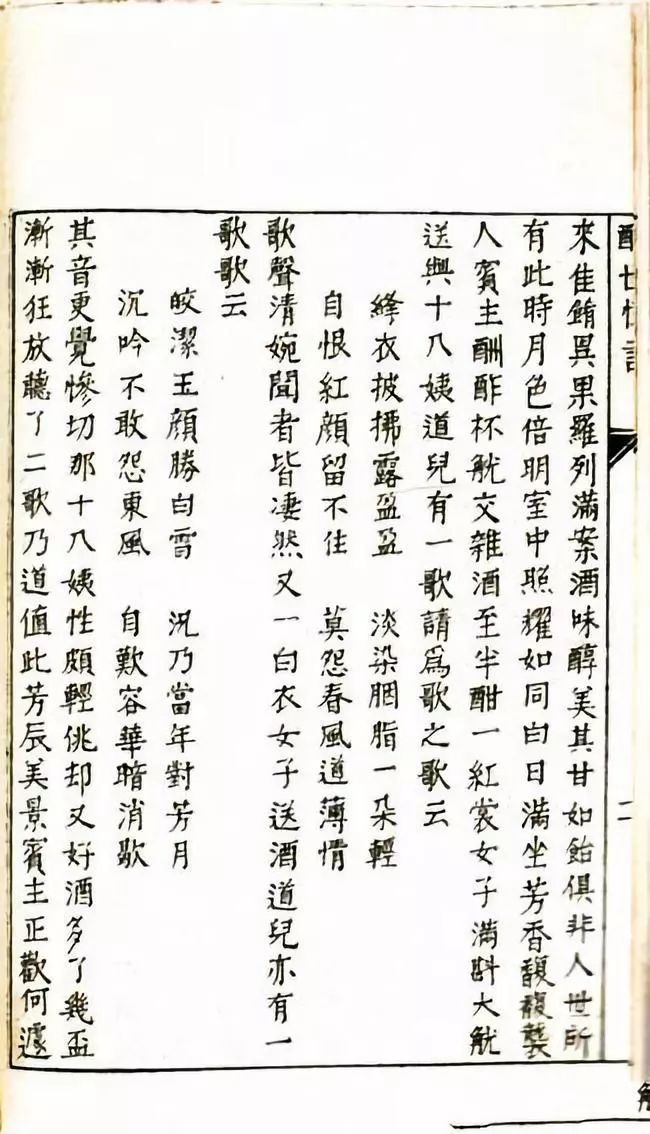 二
來佳餚異果羅列滿案酒味醇美其甘如飴俱非人世所
有此時月色倍明室中照耀如同白日滿坐芳香馥馥襲
人賓主酬酢杯觥交雜酒至半酣一紅裳女子滿斟大觥
送與十八姨道兒有一歌請爲歌之歌云
絳衣披拂露盈盈 淡染胭脂一朵輕
自恨紅顏留不住 莫怨春風道薄情
歌聲清婉聞者皆凄然又一白衣女子送酒道兒亦有一
歌歌云
皎潔玉顏勝白雪 況乃當年對芳月
沉吟不敢怨東風 自歎容華暗消歇
其音更覺慘切那十八姨性頗輕佻却又好酒多了幾盃
漸漸狂放聽了二歌乃道値此芳辰美景賓主正歡何遽